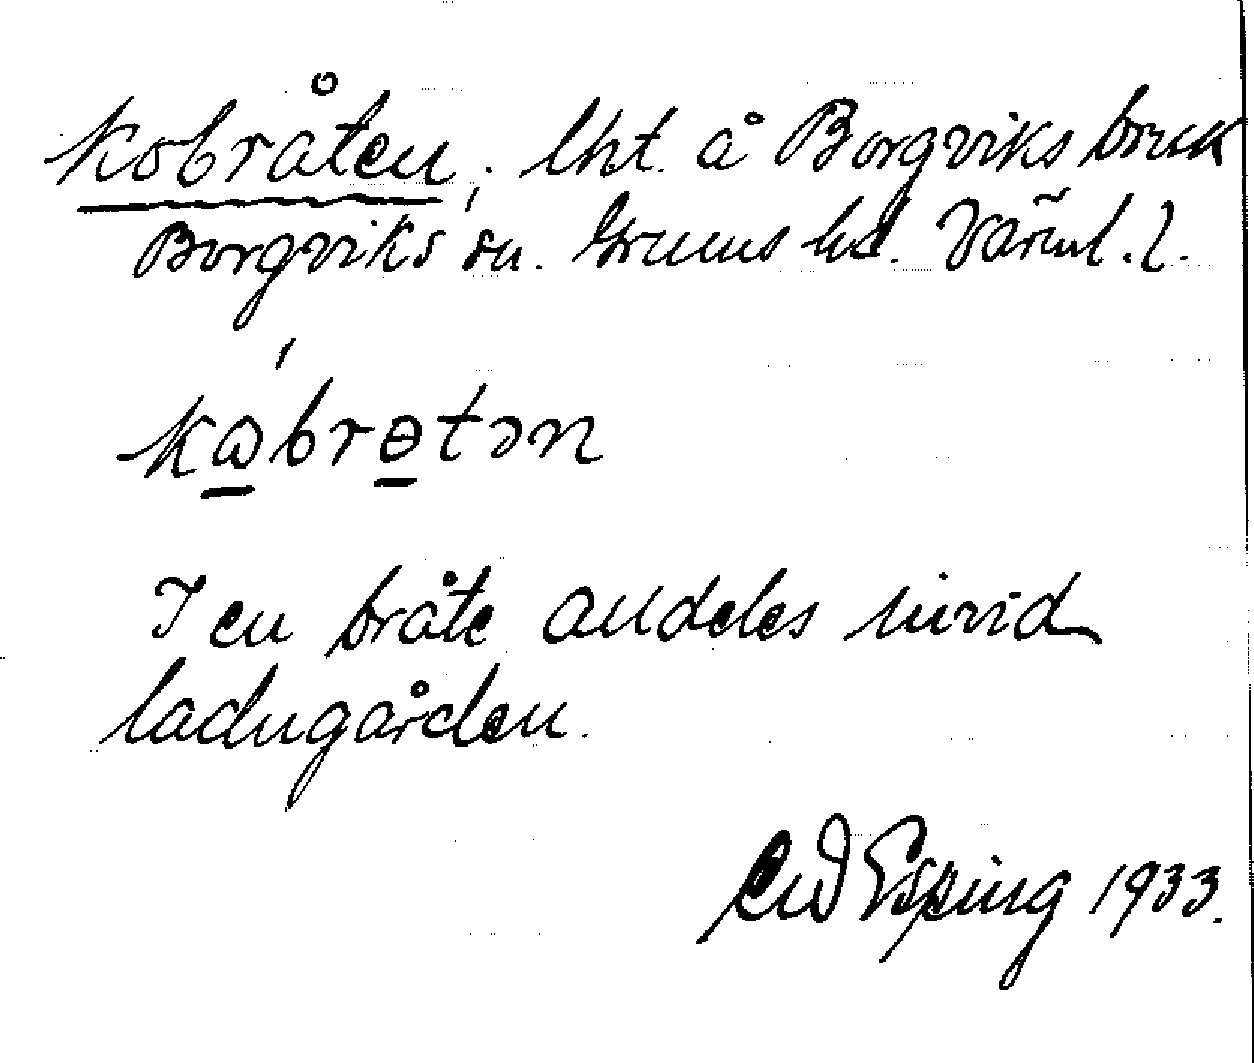 Kobråten, lht. å Borgviks bruk
Borgviks sn. Grums hd. Värml. l.
kɷbrɵtən
I en bråte alldeles invid
ladugården.
Esping 1933.